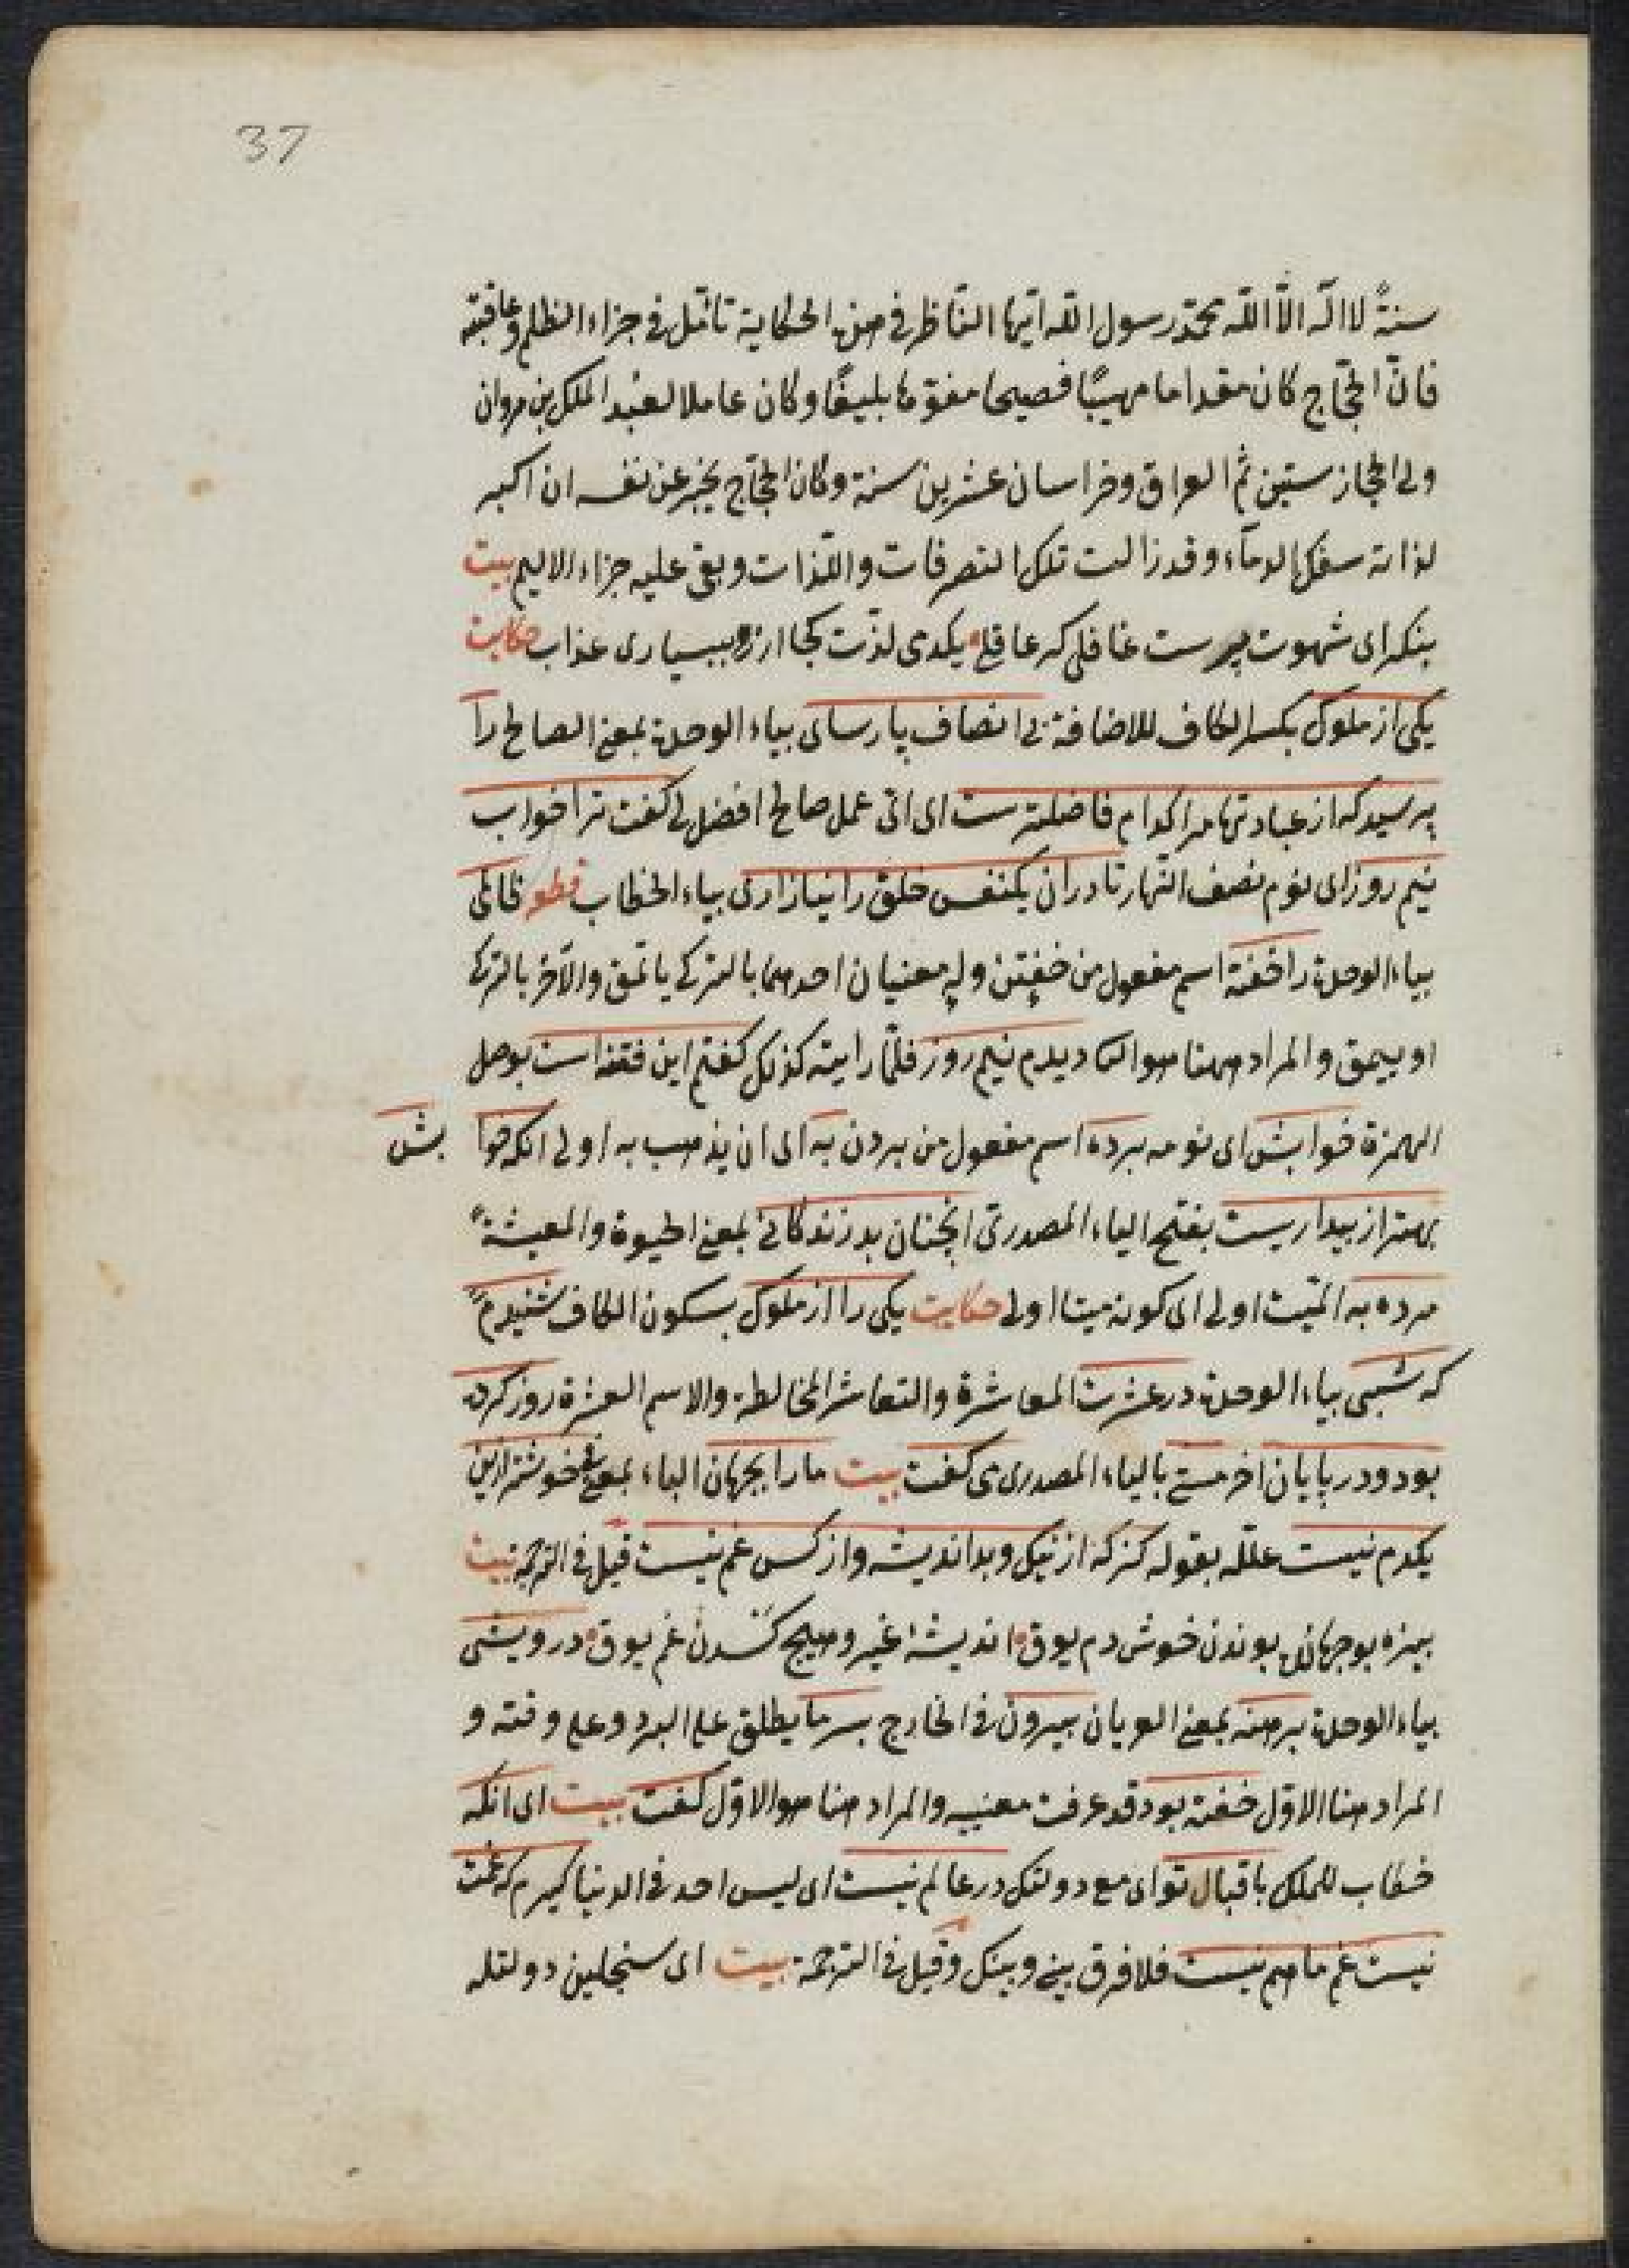 37
سنةً لا اله الّا اللّه محمّد رسول اللّه ايّها النّاظر فى هذه الحكاية تأمّل فى جزاء الظلم وعاقبته
فانّ الحجّاج كان مقداما مهيبًا فصيحا مفوّها بليغًا وكان عاملا لعبد الملك بن مروان
ولى الحجاز سنتين ثمّ العراق وخراسان عشرين سنة وكان الحجّاج يخبر عن نفسه ان اكبر
لذاته سفك الدمآء وقد زالت تلك التصرفات واللّذات وبقى عليه جزاء الاليم بيت
بنكر اى شهوت پرست غافلى كه عاقلى يكدمى لذّت كجا ارزد ببسيارى عذاب حكايت
يكى از ملوك بكسر الكاف للاضافة بى انصاف پارسائى بياء الوحدة بمعنى الصالح را
پرسيد كه از عبادتها مرا كدام فاضلترست اى اىّ عمل صالح افضل لى كفت ترا خواب
نيم روز اى نوم نصف النّهار تا دران يكنفس خلق را نيازارى بياء الخطاب قطعه ظالمى
بياء الوحدة را خفته اسم مفعول من خفتن وله معنيان احدهما بالتركى ياتمق والآخر بالتركى
اويمق والمراد ههنا هو الثانى ديدم نيم روز فلمّا رايته كذلك كفتم اين فتنه است بوصل
الهمزة خوابش اى نومه برده اسم مفعول من بردن به اى ان يذهب به اولى انكه خوا بش
بهتر از بيداريست بفتح الياء المصدرىّ انچنان بد زندكانى بمعنى الحيوة والمعيشة
مرده به الميّت اولى اى كونه ميتا اولى حكايت يكى را از ملوك بسكون الكاف شنيدم
كه شبى بياء الوحدة در عشرت المعاشرة والتعاشر المخالطة والاسم العشرة روز كرده
بود و در پايان اخر مستى بالياء المصدرى مى كفت بيت مارا بجهان الباء بمعنى فى خوشتر ازين
يكدم نيست علّله بقوله كز كه از نيك وبد انديشه واز كس غم نيست قيل فى الترجمة بيت
بيزه بو جهانك بوندن خوش دم يوق انديشۀ غير و هيچ كسدن غم يوق درويشى
بياء الوحدة برهنه بمعنى العريان بيرون فى الخارج بسرما يطلق على البرد وعلى وقته و
المراد هنا الاوّل خفته بود قد عرفت معنييه والمراد هنا هو الاوّل كفت بيت اى انكه
خطاب للملك باقبال تو اى مع دولتك در عالم نيست اى ليس احد فى الدنيا كيرم كه غمت
نيست غم ما هم نيست فلا فرق بينى وبينك وقيل فى الترجمة بيت اى سنجلين دولتله